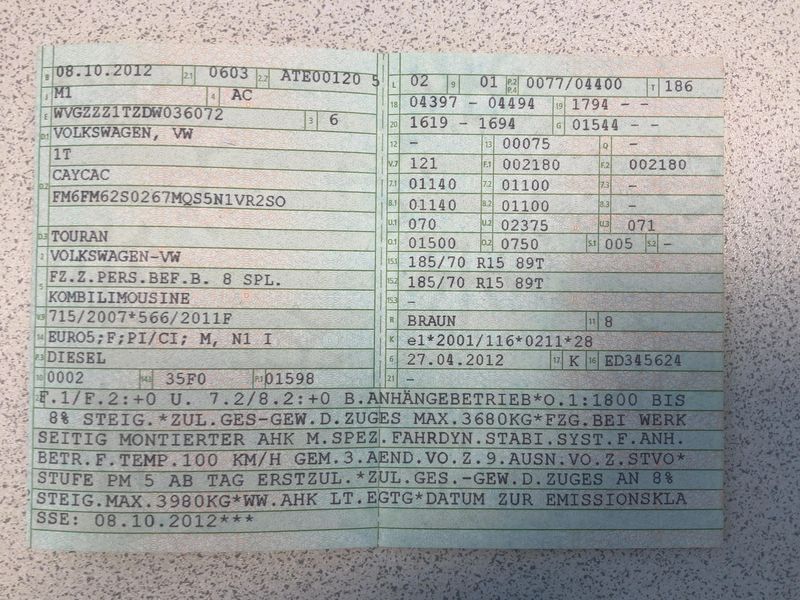 B 08.10.2012 2.1 0603 2.2 ATE00120 5
J M1 4 AC
E WVGZZZ1TZDW036072 3 6
D.1 VOLKSWAGEN, VW
1T
D.2 CAYCAC
FM6FM62S0267MQS5N1VR2SO
D.3 TOURAN
2 VOLKSWAGEN-VW
5 FZ.Z.PERS.BEF.B. 8 SPL.
KOMBILIMOUSINE
V.9 715/2007*566/2011F
14 EURO5;F;PI/CI; M, N1 I
P.3 DIESEL
10 0002 14.1 35F0 P.1 01598
L 02 9 01 P.2 P.4 0077/04400 T 186
18 04397 - 04494 19 1794 - -
20 1619 - 1694 G 01544 - -
12 - 13 00075 Q -
V.7 121 F.1 002180 F.2 002180
7.1 01140 7.2 01100 7.3 -
8.1 01140 8.2 01100 8.3 -
U.1 070 U.2 02375 U.3 071
O.1 01500 O.2 0750 S.1 005 S.2 -
15.1 185/70 R15 89T
15.2 185/70 R15 89T
15.3 -
R BRAUN 11 8
K e1*2001/116*0211*28
6 27.04.2012 17 K 16 ED345624
21 -
F.1/F.2:+0 U. 7.2/8.2:+0 B.ANHÄNGEBETRIEB*O.1:1800 BIS
8% STEIG.*ZUL.GES-GEW.D.ZUGES MAX.3680KG*FZG.BEI WERK
SEITIG MONTIERTER AHK M.SPEZ.FAHRDYN.STABI.SYST.F.ANH.
BETR.F.TEMP.100 KM/H GEM.3.AEND.VO.Z.9.AUSN.VO.Z.STVO*
STUFE PM 5 AB TAG ERSTZUL.*ZUL.GES.-GEW.D.ZUGES AN 8%
STEIG.MAX.3980KG*WW.AHK LT.EGTG*DATUM ZUR EMISSIONSKLA
SSE: 08.10.2012***